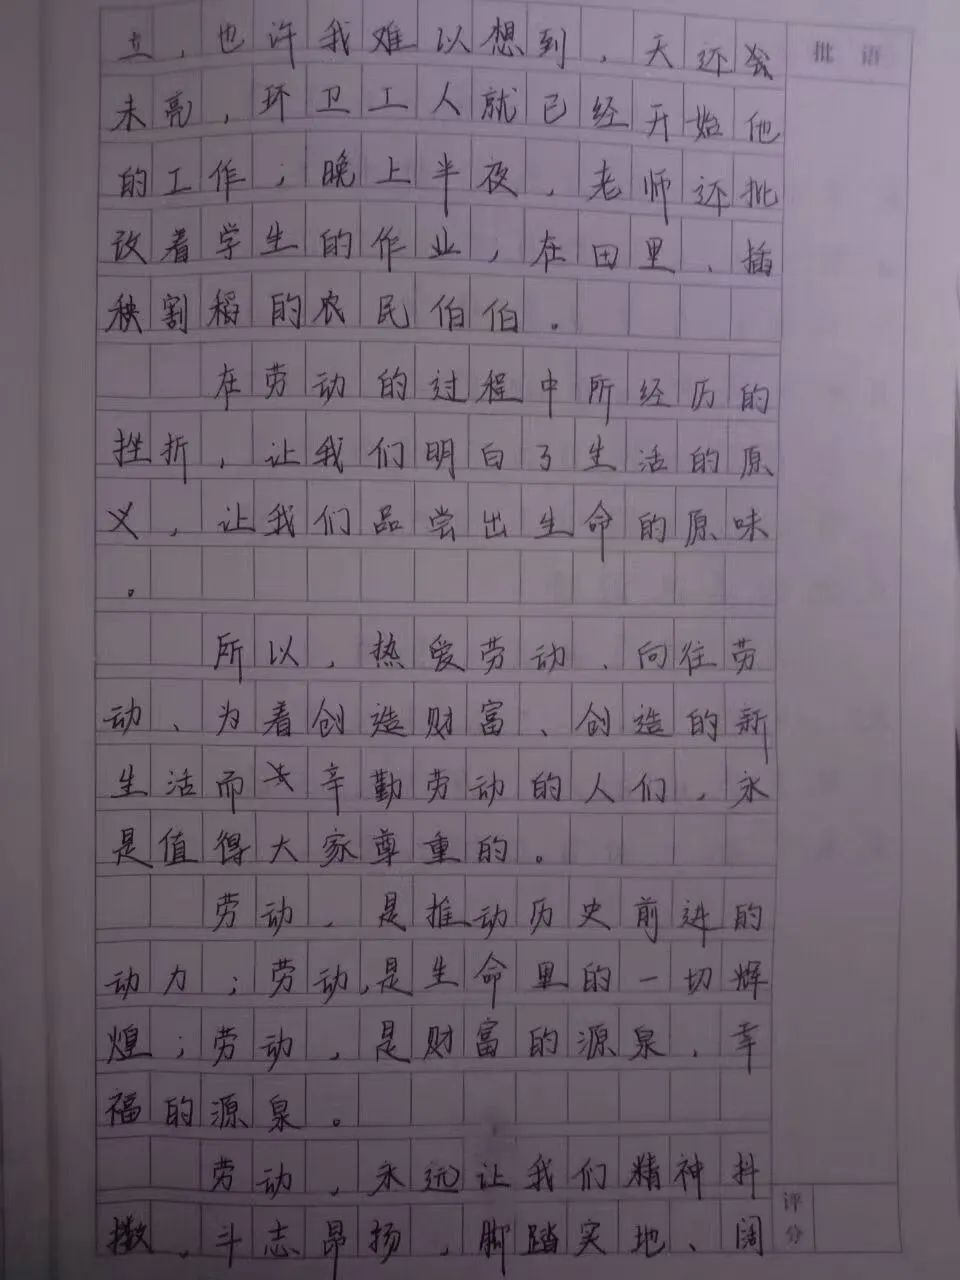 立，也许我难以想到，天还
未亮，环卫工人就已经开始他
的工作；晚上半夜，老师还批
改着学生的作业，在田里、插
秧割稻的农民伯伯。
在劳动的过程中所经历的
挫折，让我们明白了生活的原
义，让我们品尝出生命的原味
。
所以，热爱劳动、向往劳
动、为着创造财富、创造的新
生活而辛勤劳动的人们，永
是值得大家尊重的。
劳动，是推动历史前进的
动力；劳动，是生命里的一切辉
煌；劳动，是财富的源泉，幸
福的源泉。
劳动，永远让我们精神抖
擞，斗志昂扬，脚踏实地、阔
批语
评分